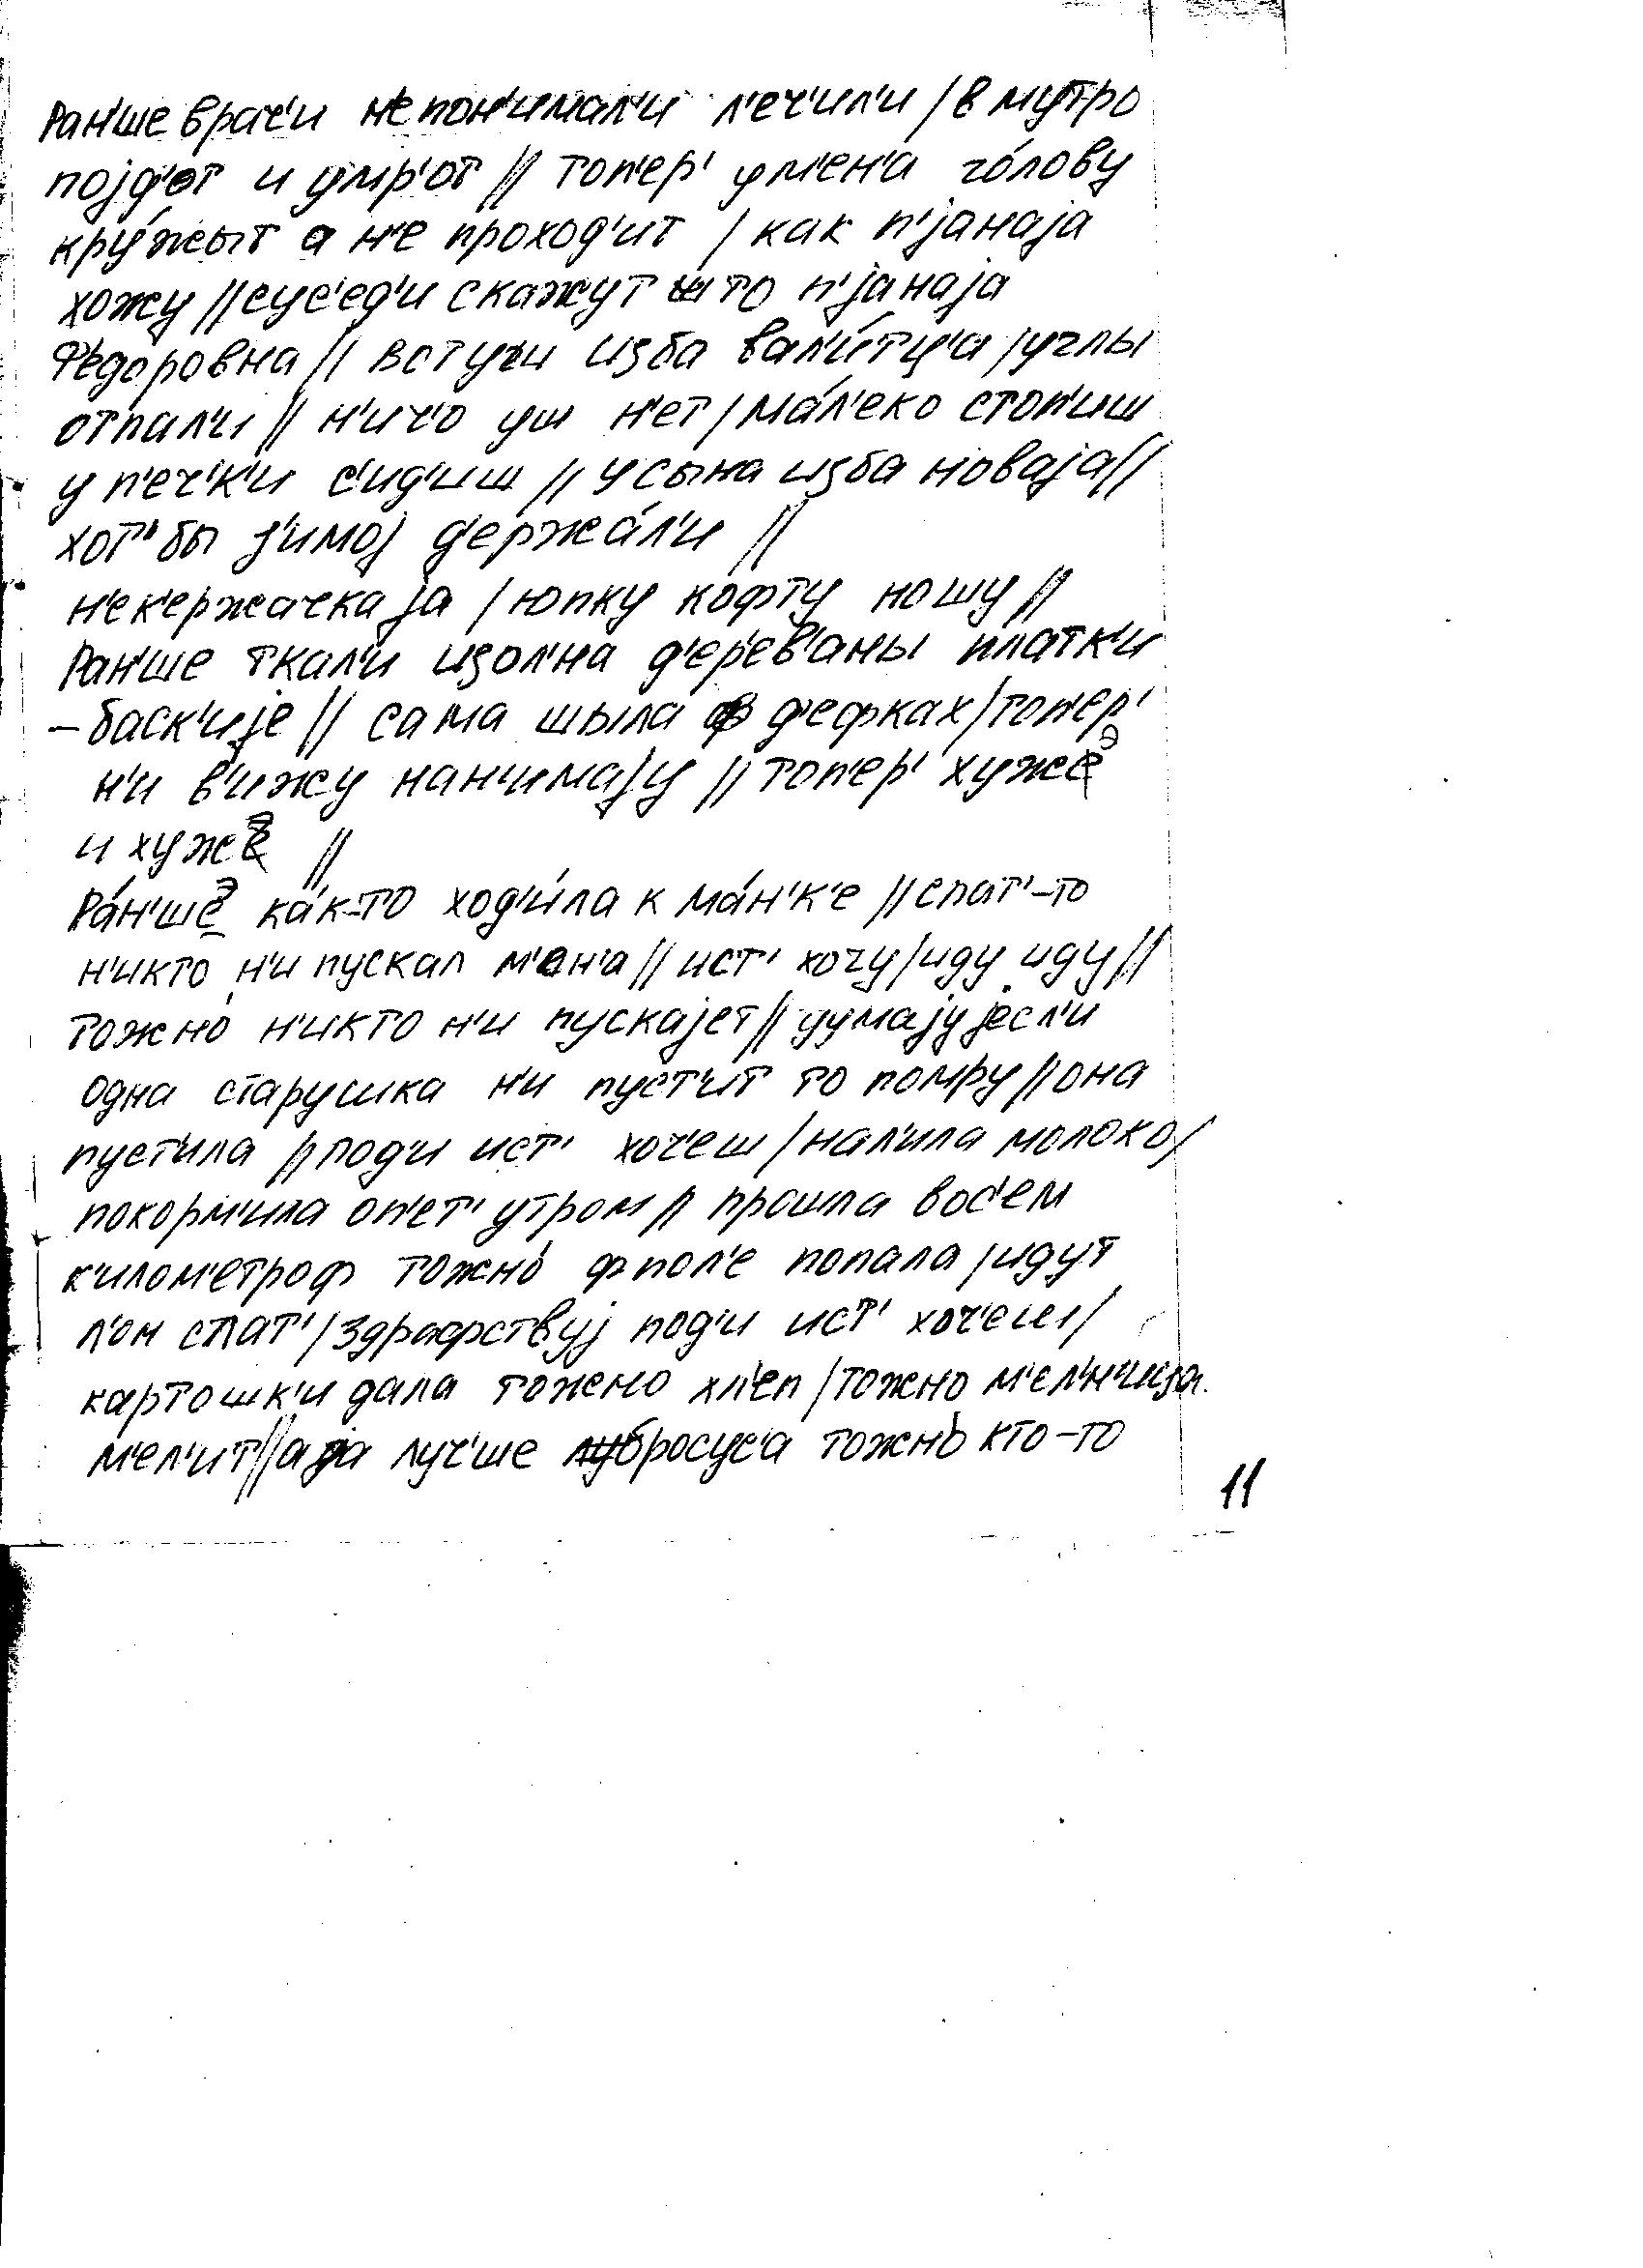 Ран'ше врач'и не пон'имал'и л'еч'ил'и / в мутро
појд'от и умр'от // топ'ер' у м'ен'а го́лову
кру́жыт а н'е проход'ит / как п'јанаја
хожу // сус'ед'и скажут што п'јанаја
Ф'едоровна // встуги изба вал'и́тц'а / углы
отпал'и // н'ич'о уш н'ет / ма́л'еко стоп'иш
у п'еч'к'и с'ид'иш // у сына изба новаја //
хот' бы з'имој д'ержа́л'и //
н'ек'ержачка ја / юпку кофту ношу //
Ран'ше ткал'и изол'на д'ер'ев'аны платк'и
– баск'ије // сама шыла в д'ефках / топ'ер'
н'и в'ижу нан'имају // топ'ер' хужэ
и хужэ //
Ра́н'шэ ка́к-то ход'и́ла к ма́н'к'е // спат'-то
н'икто н'и пускал м'ен'а // ист' хочу / иду иду //
тожно́ н'икто н'и пускајет // думају јесл'и
одна старушка н'и пуст'ит то помру // она
пуст'ила // под'и ист' хоч'еш / нал'ила молоко /
покорм'ила оп'ет' утром // прошла вос'ем
к'илом'етроф тожно́ ф пол'е попала / идут
л'он слат' / здрафствуј под'и ист' хоч'еш /
картошк'и дала тожно хл'еп / тожно м'ел'н'ица
м'ел'ит // а ја луч'ше бросус'а тожно́ кто-то
11